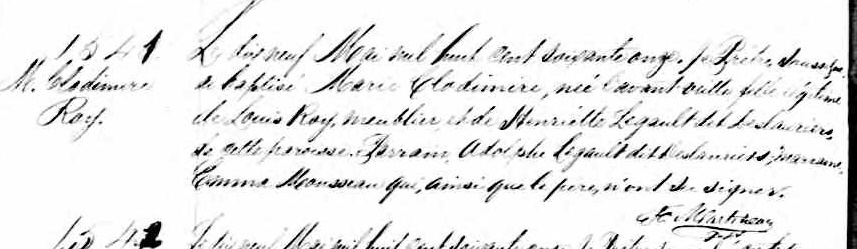 1541
M. Clodimire
Roy.
Le dix neuf Mai mil huit cent soixante onze, je Prêtre, soussigné
ai baptisé Marie Clodimire, née l'avant veille, fille légitime
de Louis Roy, meublier, et de Henriette Legault dit Deslauriers,
de cette paroisse. Parrain, Adolphe Legault dit Deslauriers, marraine,
Emma Mousseau qui, ainsi que le père, n'ont su signer.
1542
Le dix neuf Mai mil huit cent soixante onze, je Prêtre